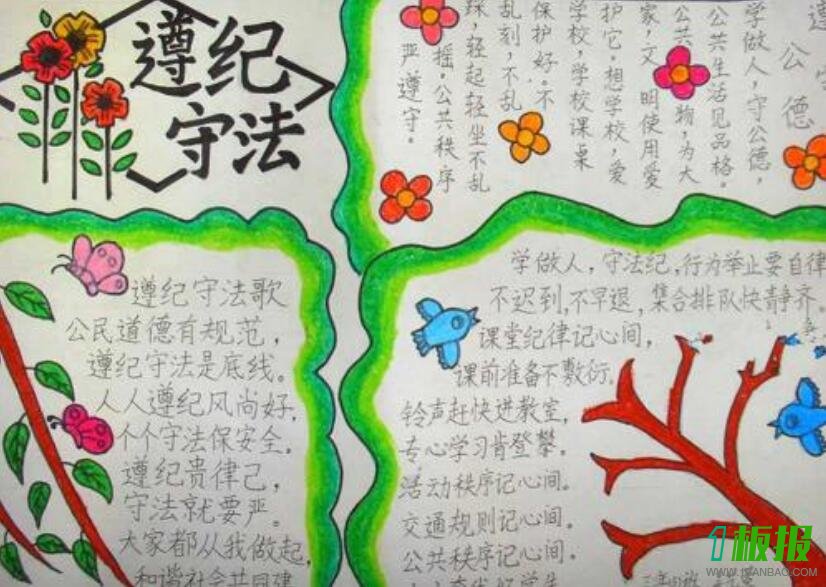 遵纪
守法
遵守
公德
学做人，守公德，
公共生活见品格。
公共 物，为大
家，文明使用爱
护它。想学校，爱
学校，学校课桌
保护好。不
乱刻，不乱
踩，轻起轻坐不乱
摇，公共秩序
严遵守。
遵纪守法歌
公民道德有规范，
遵纪守法是底线。
人人遵纪风尚好，
个个守法保安全。
遵纪贵律己，
守法就要严。
大家都从我做起，
和谐社会共同建
学做人，守法纪，行为举止要自律
不迟到，不早退，集合排队快静齐。
课堂纪律记心间，
课前准备不敷衍。
铃声赶快进教室，
专心学习肯登攀。
活动秩序记心间。
交通规则记心间。
公共秩序记心间。
板报
WWW.1BANBAO.COM